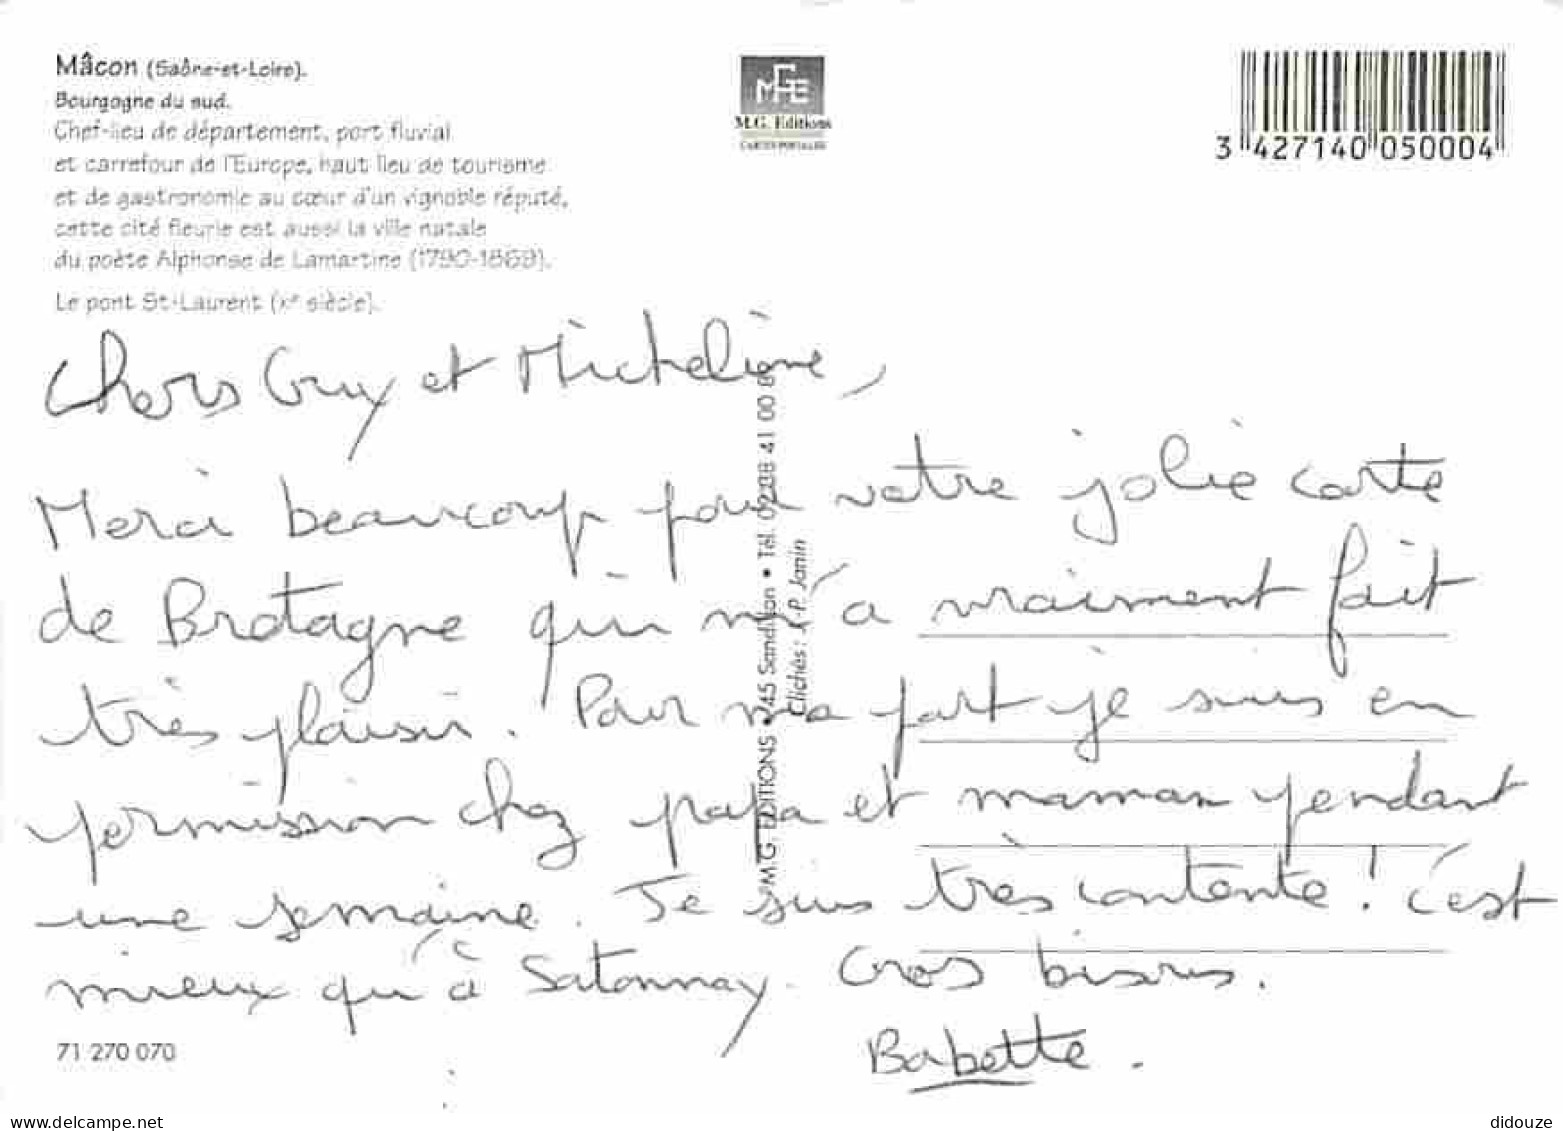 Mâcon (Saône-et-Loire).
Bourgogne du sud.
Chef-lieu de département, port fluvial
et carrefour de l'Europe, haut lieu de tourisme
et de gastronomie au cœur d'un vignoble réputé,
cette cité fleurie est aussi la ville natale
du poète Alphonse de Lamartine (1790-1869).
Le pont St-Laurent (XIe siècle).
MGE
M.G. Editions
CARTES POSTALES
3 427140 050004
Chers Guy et Micheline,
Merci beaucoup pour votre jolie carte
de Bretagne qui m'a vraiment fait
très plaisir. Pour ma part je suis en
permission chez papa et maman pendant
une semaine. Je suis très contente ! c'est
mieux qu'à Satonnay. Gros bisous.
Babette.
M.G. EDITIONS • 45 Sandillon • Tél. 02 38 41 00 8
Clichés : J.-P. Janin
71 270 070
delcampe.net
didouze